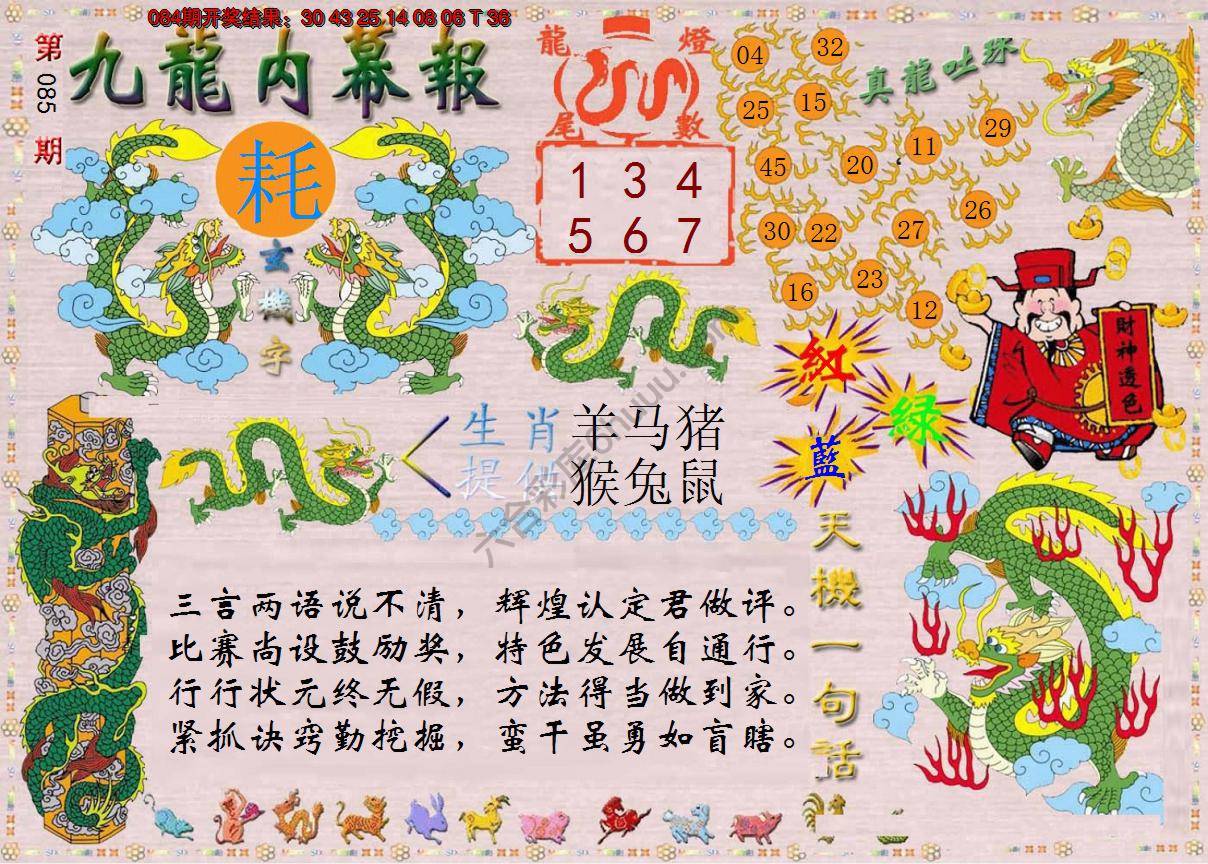 084期开奖结果：30 43 25 14 08 06 T 36
第085期
九龍内幕報
龍燈
尾數
1 3 4
5 6 7
真龍吐珠
04
32
25
15
11
29
45
20
30
22
27
26
16
23
12
耗
玄機字
財神透色
紅
綠
藍
生肖
羊马猪
提供
猴兔鼠
天機一句話
三言两语说不清，辉煌认定君做评。
比赛尚设鼓励奖，特色发展自通行。
行行状元终无假，方法得当做到家。
紧抓诀窍勤挖掘，蛮干虽勇如盲瞎。